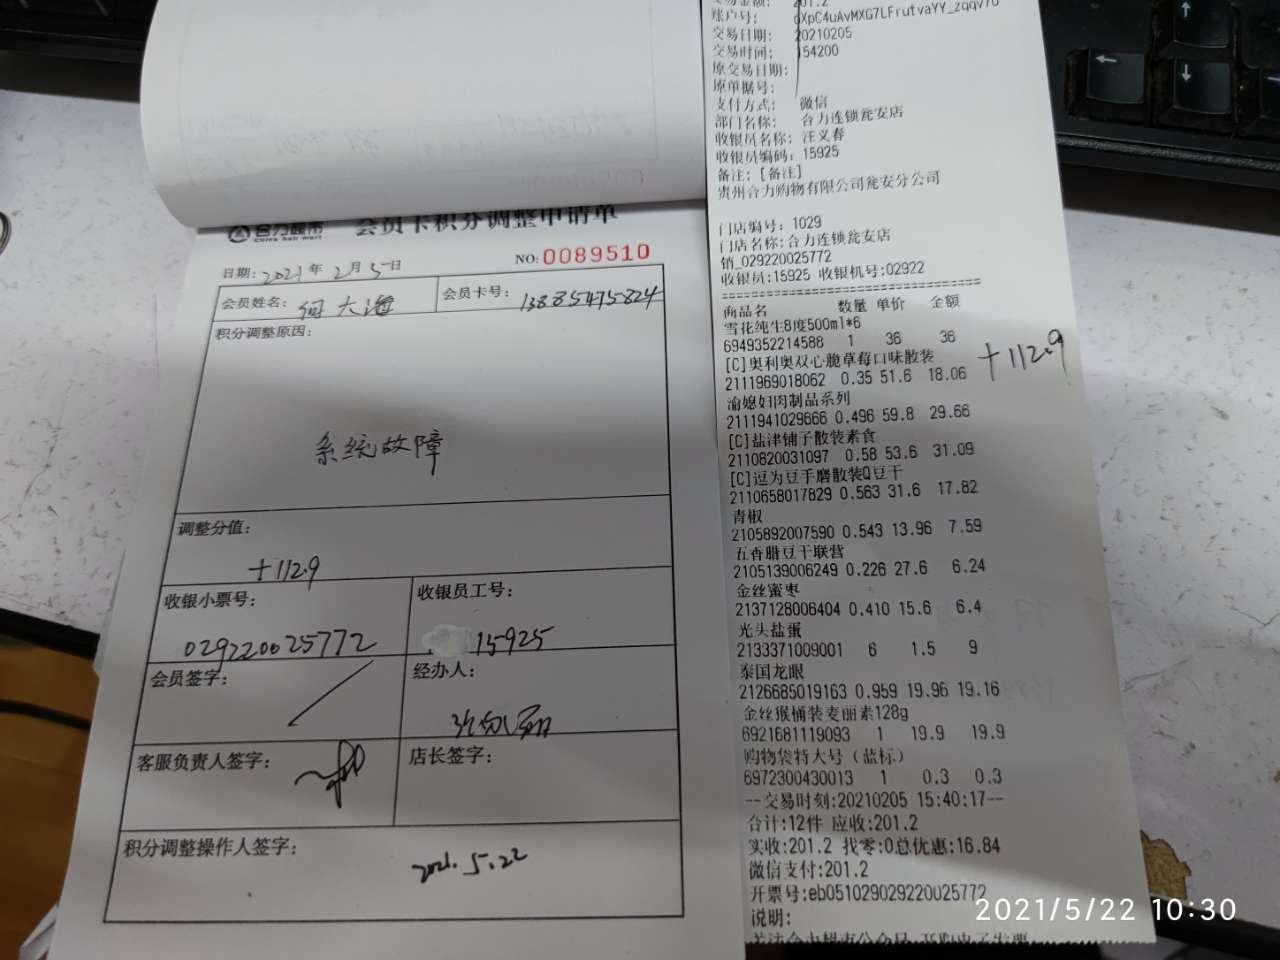 合力超市
China heli mart
会员卡积分调整申请单
日期: 2021年 2月 5日
NO: 0089510
会员姓名: 何大海
会员卡号: 13885475824
积分调整原因:
系统故障
调整分值:
+112.9
收银小票号:
029220025772
收银员工号:
15925
会员签字:
经办人:
客服负责人签字:
店长签字:
积分调整操作人签字:
2021.5.22
交易金额: 201.2
账户号:
交易日期: 20210205
交易时间: 154200
原交易日期:
原单据号:
支付方式: 微信
部门名称: 合力连锁瓮安店
收银员名称: 汪义春
收银员编码: 15925
备注: [备注]
贵州合力购物有限公司瓮安分公司
门店编号: 1029
门店名称:合力连锁瓮安店
销_029220025772
收银员:15925 收银机号:02922
商品名 数量 单价 金额
雪花纯生8度500ml*6
6949352214588 1 36 36
[C]奥利奥双心脆草莓口味散装
2111969018062 0.35 51.6 18.06
+112.9
渝媳妇肉制品系列
2111941029666 0.496 59.8 29.66
[C]盐津铺子散装素食
2110820031097 0.58 53.6 31.09
[C]逗为豆手磨散装Q豆干
2110658017829 0.563 31.6 17.82
青椒
2105892007590 0.543 13.96 7.59
五香腊豆干联营
2105139006249 0.226 27.6 6.24
金丝蜜枣
2137128006404 0.410 15.6 6.4
光头盐蛋
2133371009001 6 1.5 9
泰国龙眼
2126685019163 0.959 19.96 19.16
金丝猴桶装麦丽素128g
6921681119093 1 19.9 19.9
购物袋特大号(蓝标)
6972300430013 1 0.3 0.3
--交易时刻:20210205 15:40:17--
合计:12件 应收:201.2
实收:201.2 找零:0总优惠:16.84
微信支付:201.2
开票号:eb051029029220025772
说明:
关注合力超市公众号 开购电子发票
2021/5/22 10:30